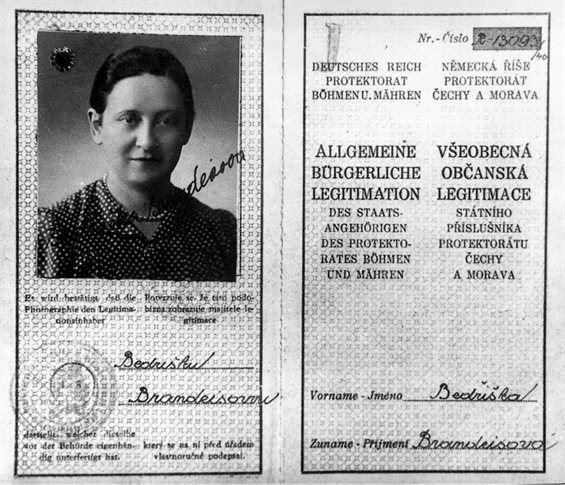 Brandeisova
Es wird bestätigt, daß die
Photographie den Legitima-
tionsinhaber
Potvrzuje se, že tato podo-
bizna zobrazuje majitele le-
gitimace
Bedřišku
Brandeisovou
darstellt, welcher dieselbe
vor der Behörde eigenhän-
dig unterfertigt hat.
který se na ní před úřadem
vlastnoručně podepsal.
Nr. - Číslo R-13093/40
DEUTSCHES REICH
PROTEKTORAT
BÖHMEN U. MÄHREN
NĚMECKÁ ŘÍŠE
PROTEKTORÁT
ČECHY A MORAVA
ALLGEMEINE
BÜRGERLICHE
LEGITIMATION
DES STAATS-
ANGEHÖRIGEN
DES PROTEKTO-
RATES BÖHMEN
UND MÄHREN
VŠEOBECNÁ
OBČANSKÁ
LEGITIMACE
STÁTNÍHO
PŘÍSLUŠNÍKA
PROTEKTORÁTU
ČECHY
A MORAVA
Vorname - Jméno Bedřiška
Zuname - Příjmení Brandeisova